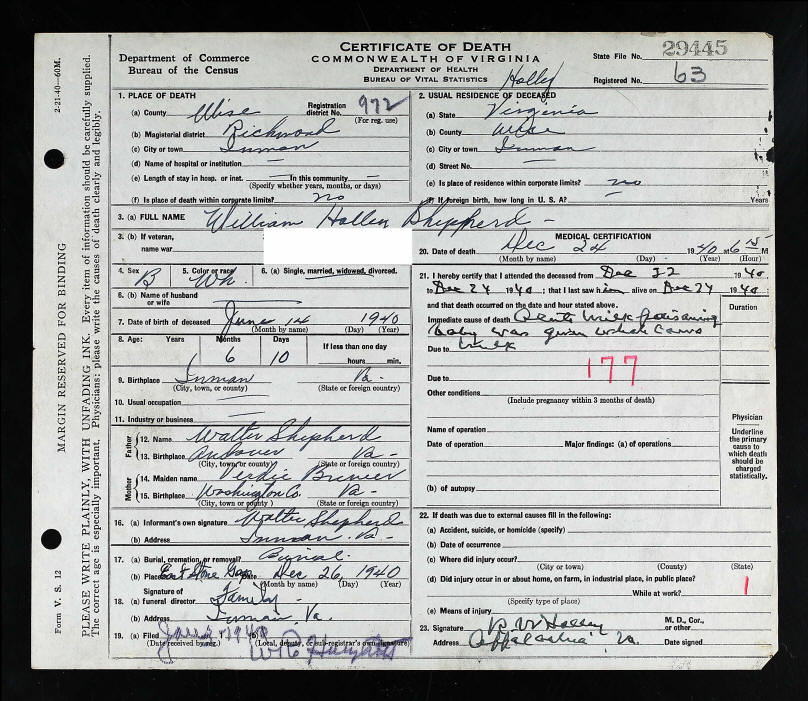 CERTIFICATE OF DEATH
COMMONWEALTH OF VIRGINIA
DEPARTMENT OF HEALTH
BUREAU OF VITAL STATISTICS
Department of Commerce
Bureau of the Census
State File No. 29445
Registered No. 63
Holley
2-21-40—60M.
MARGIN RESERVED FOR BINDING
PLEASE WRITE PLAINLY, WITH UNFADING INK. Every item of information should be carefully supplied.
The correct age is especially important. Physicians: please write the causes of death clearly and legibly.
Form V. S. 12
1. PLACE OF DEATH
(a) County Wise Registration district No. 972 (For reg. use)
(b) Magisterial district Richmond
(c) City or town Inman
(d) Name of hospital or institution —
(e) Length of stay in hosp. or inst. — In this community —
(Specify whether years, months, or days)
(f) Is place of death within corporate limits? no
2. USUAL RESIDENCE OF DECEASED
(a) State Virginia
(b) County Wise
(c) City or town Inman
(d) Street No. —
(e) Is place of residence within corporate limits? no
(f) If foreign birth, how long in U. S. A.? — Years
3. (a) FULL NAME William Holley Shipperd -
3. (b) If veteran, name war
4. Sex B 5. Color or race Wh. 6. (a) Single, married, widowed, divorced.
6. (b) Name of husband or wife
7. Date of birth of deceased June 14 1940
(Month by name) (Day) (Year)
8. Age: Years Months Days If less than one day
6 10 hours min.
9. Birthplace Inman Va -
(City, town, or county) (State or foreign country)
10. Usual occupation
11. Industry or business —
Father
12. Name Walter Shepherd
13. Birthplace Andover Va -
(City, town or county) (State or foreign country)
Mother
14. Maiden name Verdie
15. Birthplace Washington Co. Va -
(City, town or county) (State or foreign country)
16. (a) Informant's own signature Walter Shepherd
(b) Address Inman Va -
17. (a) Burial, cremation, or removal? Burial.
(b) Place East Stone Gap Date Dec 26, 1940
(Month by name) (Day) (Year)
18. (a) Signature of funeral director Family -
(b) Address Inman, Va.
19. (a) Filed
(Date received by reg.) (Local, deputy, or sub-registrar's own signature)
MEDICAL CERTIFICATION
20. Date of death Dec 24 1940 at 6 M
(Month by name) (Day) (Year) (Hour)
21. I hereby certify that I attended the deceased from Dec 22 1940
to Dec 24 1940; that I last saw him alive on Dec 24 1940;
and that death occurred on the date and hour stated above.
Duration
Immediate cause of death milk poisoning
baby was given whole cows
Due to milk
177
Due to
Other conditions
(Include pregnancy within 3 months of death)
Name of operation
Date of operation Major findings: (a) of operations
(b) of autopsy
Physician
Underline the primary cause to which death should be charged statistically.
22. If death was due to external causes fill in the following:
(a) Accident, suicide, or homicide (specify)
(b) Date of occurrence
(c) Where did injury occur?
(City or town) (County) (State)
(d) Did injury occur in or about home, on farm, in industrial place, in public place?
While at work?
(Specify type of place)
1
(e) Means of injury
23. Signature Holley M. D., Cor., or other
Address Appalachia, Va. Date signed